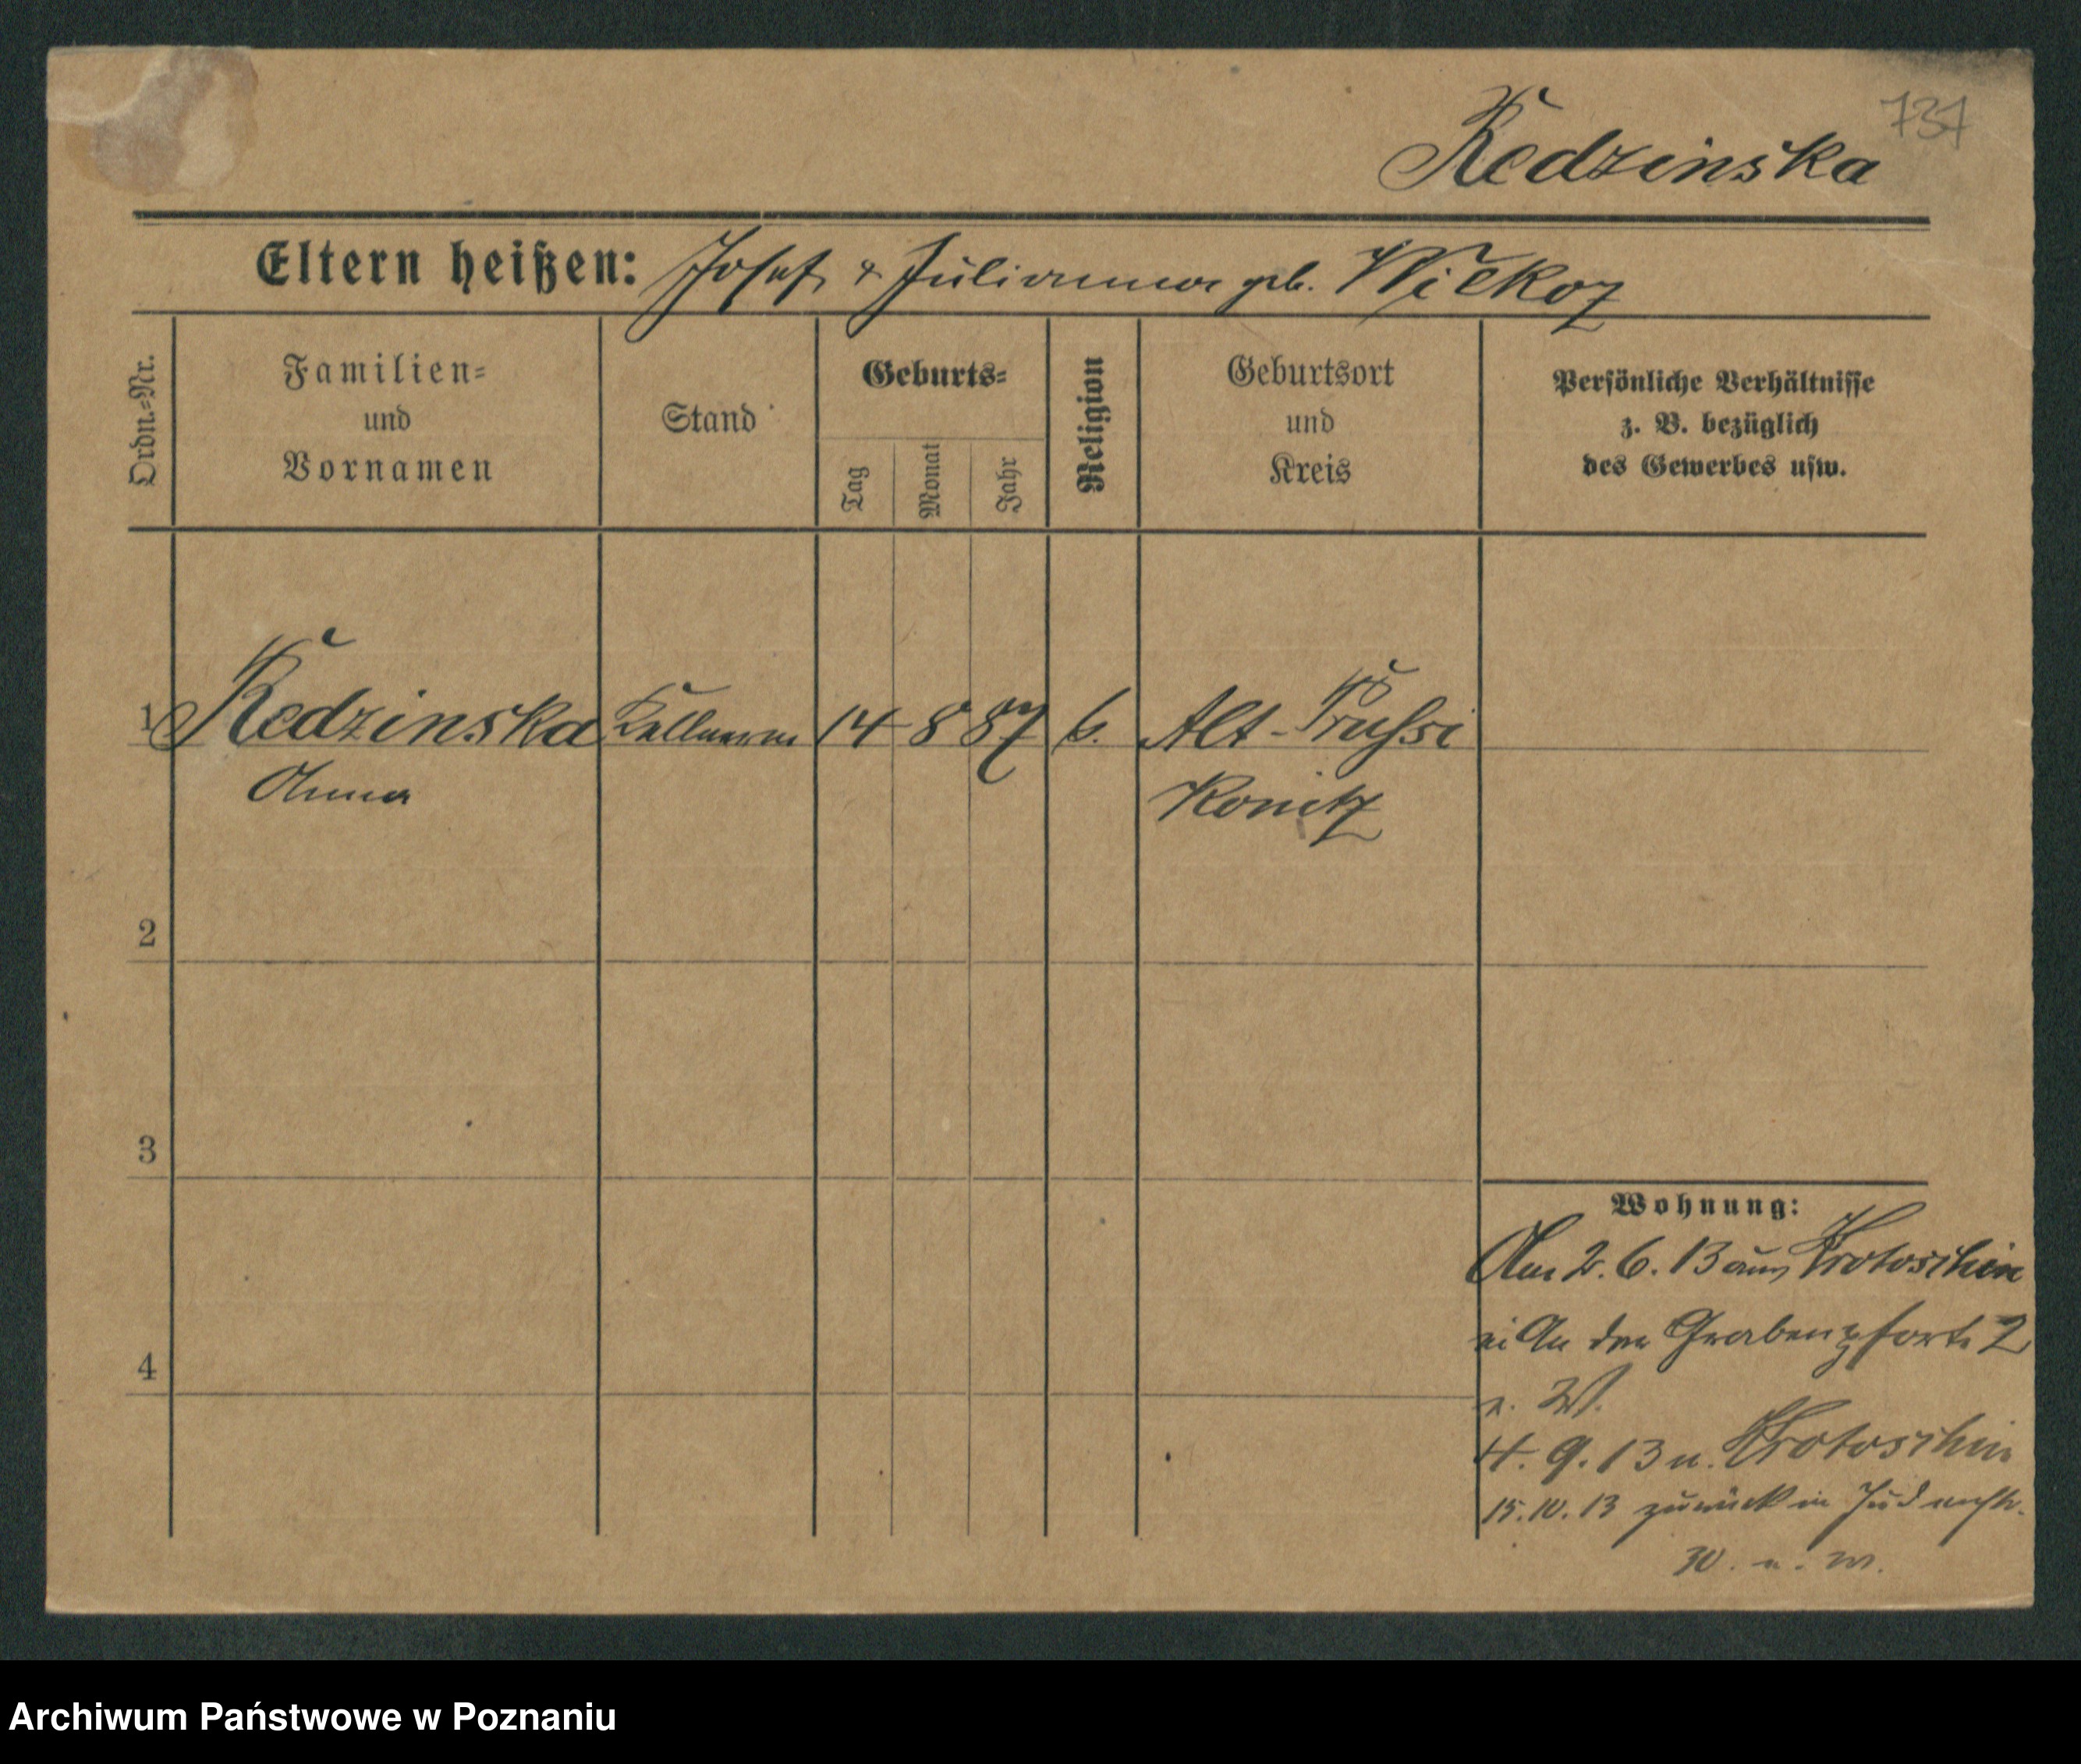 737
Kedzinska
Eltern heißen: Josef & Julianna geb. Wiekoz
Ordn.-Nr.
Familien-
und
Vornamen
Stand
Geburts-
Tag
Monat
Jahr
Religion
Geburtsort
und
Kreis
Persönliche Verhältnisse
z. B. bezüglich
des Gewerbes usw.
1 Kedzinska Kellnerin 14 8 87 k. Alt-Prussi
Anna Konitz
2
3
4
Wohnung:
Am 2. 6. 13 aus Krotoschin
An der Grabenpforte 2
4. 9. 13 n. Krotoschin
15. 10. 13 zurück in Judenstr.
30.
Archiwum Państwowe w Poznaniu